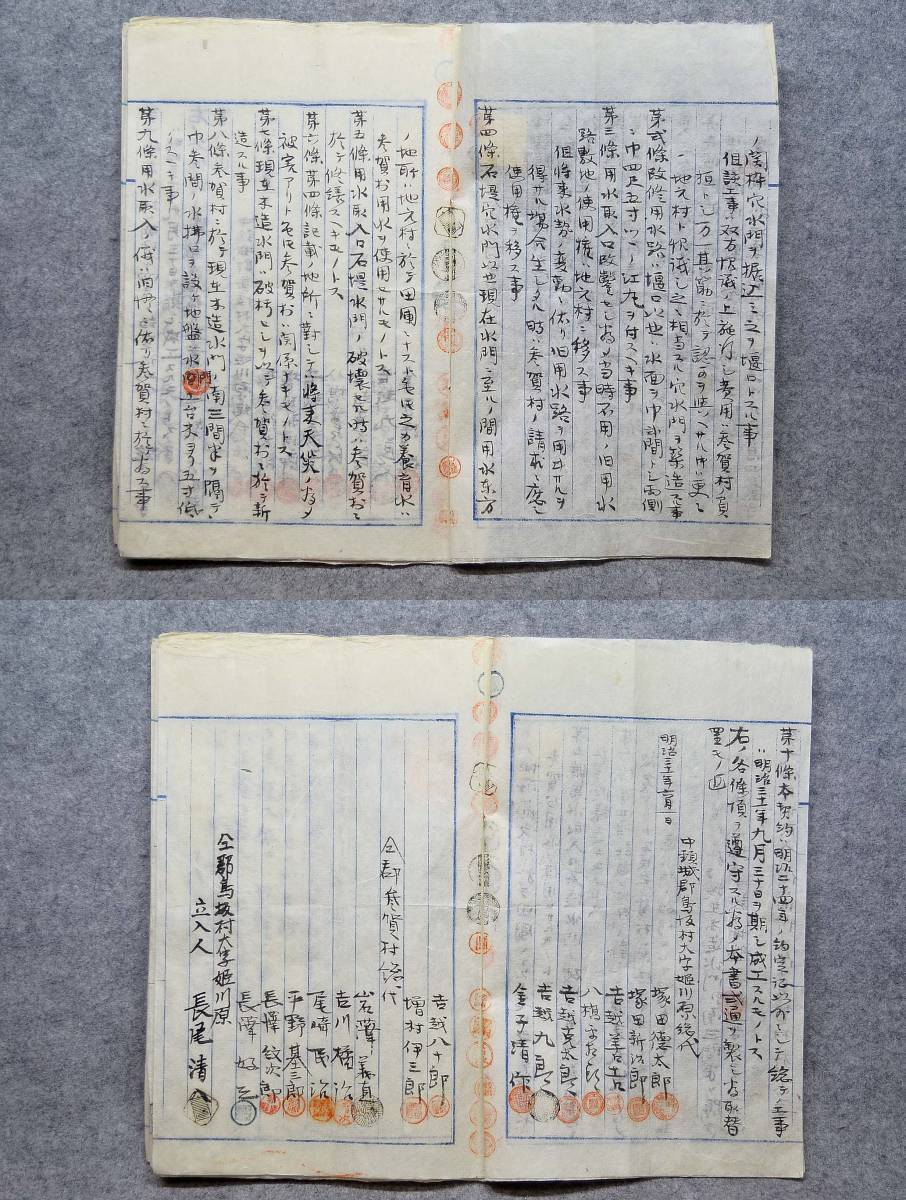 ノ箱枠穴水門ヲ掘込ミ之ヲ堰口トスル事
但該工事ハ双方協議ノ上施行シ費用ハ参賀村ノ負
担トシ万一其筋ニ於テ認可ヲ與ヘサル時ハ更ニ
地元村ト协議シ之ニ相当スル穴水門ヲ築造スル事
第弐條改修用水路ハ堰口以北ハ水面ヲ巾弐間トシ両側
ニ巾四尺五寸ツヽノ江丸ヲ付スヘキ事
第三條用水取入口改鑿セシ為メ当時不用ノ旧用水
路敷地ノ使用権ハ地元村ニ移ス事
但将来水勢ノ変動ニ依リ旧用水路ヲ用ヰサルヲ
得サル場合生シタル時ハ参賀村ノ請求ニ應シ
使用権ヲ移ス事
第四條石堤穴水門以北現在水門ニ至ルノ間用水东方
ノ地所ハ地元村ニ於テ田圃トナスト雖トモ之カ養育水ハ
参賀村用水ヲ使用セサルモノトス
第五條用水取入口石堤水門ノ破壊セル時ハ参賀村ニ
於テ修繕スヘキモノトス
第六條第四條記載ノ地所ニ對シテハ将来天災ノ為メ
被害アリト雖トモ参賀村ハ関係ナキモノトス
第七條現在木造水門ハ破朽セシヲ以テ参賀村ニ於テ新
造スル事
第八條参賀村ニ於テ現在木造水門ノ南三間半ヲ隔テ
巾参間ノ水拂口ヲ設ケ地盤ハ水門ノ台木ヨリ五寸低
ノスヘキ事
第九條用水取入ノ儀ハ旧慣ニ依リ参賀村ニ於テ為ス事
第十條本契約ハ明治二十四年ノ約定証以外ニシテ総テ工事
ハ明治三十一年九月三十日ヲ期シ成工スルモノトス
右ノ各條項ヲ遵守スル為メ本書弐通ヲ製シ為取替
置モノ也
明治三十一年六月一日
中頸城郡鳥坂村大字姫川原総代
塚田徳太郎
塚田新治郎
吉越善吉
吉越九郎
金子清作
仝郡参賀村総代
吉越八十郎
増村伊三郎
岩澤義直
吉川橘治
尾崎民治
平野基三郎
長澤紋次郎
長澤好三
仝郡鳥坂村大字姫川原
立入人
長尾清八